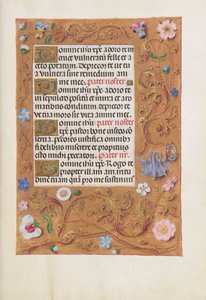 Domine ihu xpe adoro te in
cruce vulneratum felle et a
ceto potatum. Deprecor te ut tu
a vulnera sint remedium ani
me mee. Pater noster
Domine ihu xpe adoro te in
sepulchro positum mirra et aro
matibus conditum deprecor te
ut tua mors sit vita anime mee.
Domine ihu Pater noster
xpe pastor bone iustos co
serva peccatores iustifica omnibus
fidelibus miserere et propitius
esto michi peccatori. Pater nr.
Domine ihu xpe Rogo te
propter illam amaritudi
nem quam pro me sustinuisti